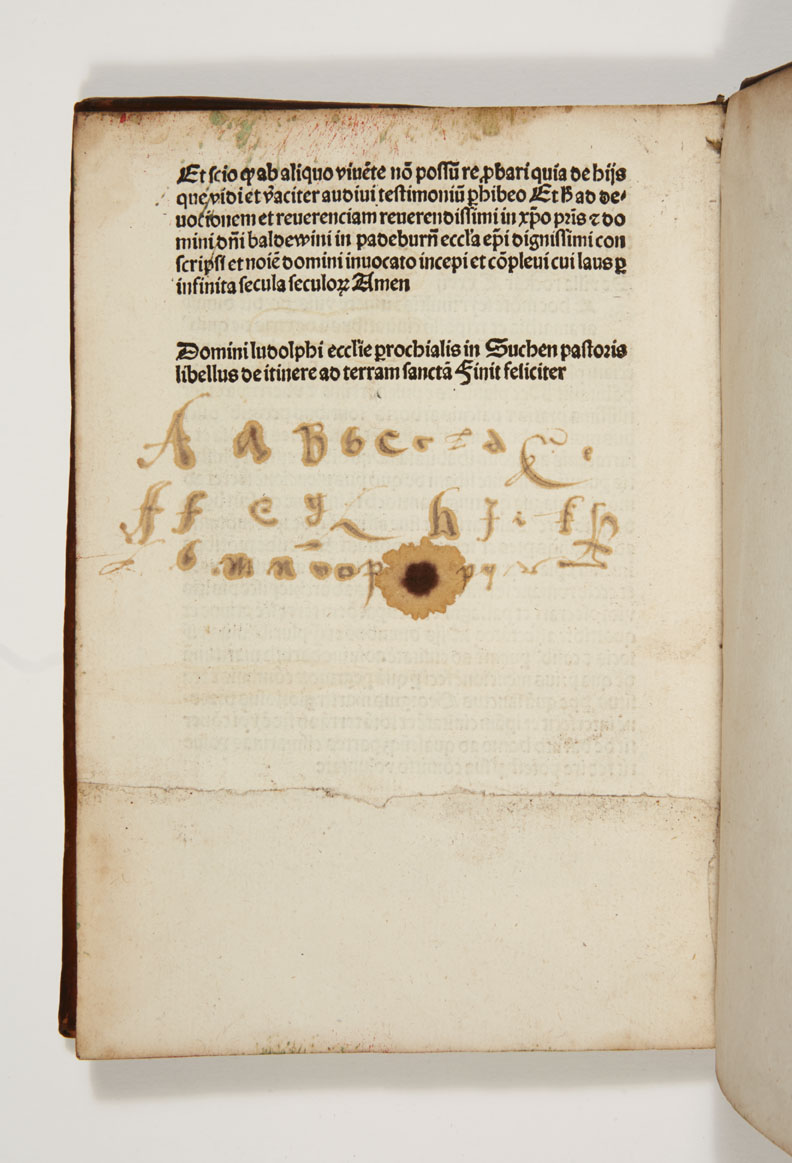 Et scio ꝙ ab aliquo viuẽte nõ possũ reꝓbari quia de hijs
que vidi et v̓aciter audiui testimoniũ ꝑhibeo Et h̵ ad de⸗
uotionem et reuerenciam reuerendissimi in xp̃o pr̃is ⁊ do
mini dñi baldewini in padeburñ eccl̃a ep̃i dignissimi con
scripsi et noiẽ domini inuocato incepi et cõpleui cui laus ꝑ
infinita secula seculoꝝ Amen
Domini ludolphi eccl̃ie ꝑrochialis in Suchen pastoris
libellus de itinere ad terram sanctã Finit feliciter
A a B b c c d e
ff f e g h j i f
m n o o p p q